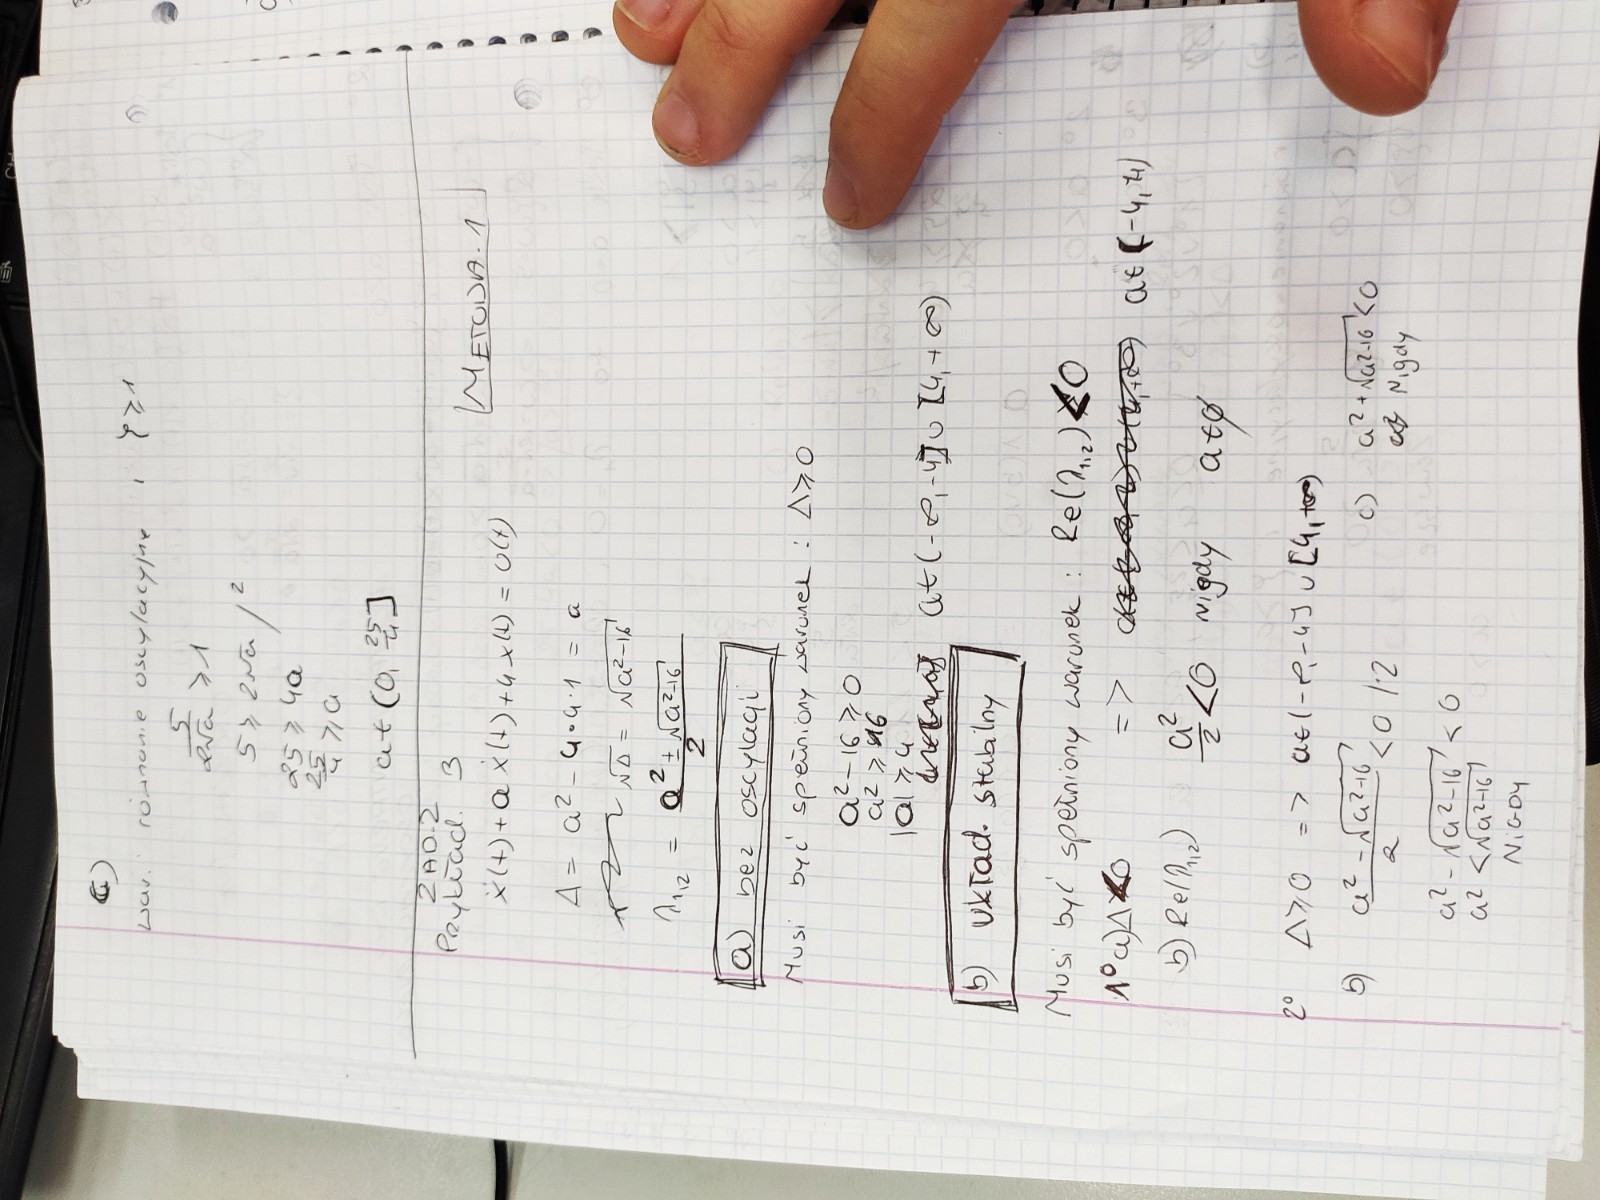 war. nieoscylacyjne ; ζ ≥ 1
5/(2√a) ≥ 1
5 ≥ 2√a /²
25 ≥ 4a
25/4 ≥ a
a ∈ (0, 25/4]
ZAD.2
Przykład. 3
METODA.1
ẍ(t) + a ẋ(t) + 4x(t) = u(t)
Δ = a² - 4·4·1 = a
√Δ = √(a²-16)
λ₁,₂ = (a² ± √(a²-16))/2
a) bez oscylacji
Musi być spełniony warunek : Δ ≥ 0
a² - 16 ≥ 0
a² ≥ 16
|a| ≥ 4
a ∈ (-∞, -4] ∪ [4, +∞)
b) układ. stabilny
Musi być spełniony warunek : Re(λ₁,₂) < 0
1° a) Δ < 0 => a ∈ (-4, 4)
b) Re(λ₁,₂) a²/2 < 0 nigdy a ∈ ∅
2° Δ ≥ 0 => a ∈ (-∞, -4] ∪ [4, +∞)
b) (a² - √(a²-16))/2 < 0 /2
a² - √(a²-16) < 0
a² < √(a²-16)
NIGDY
c) a² + √(a²-16) < 0
Nigdy